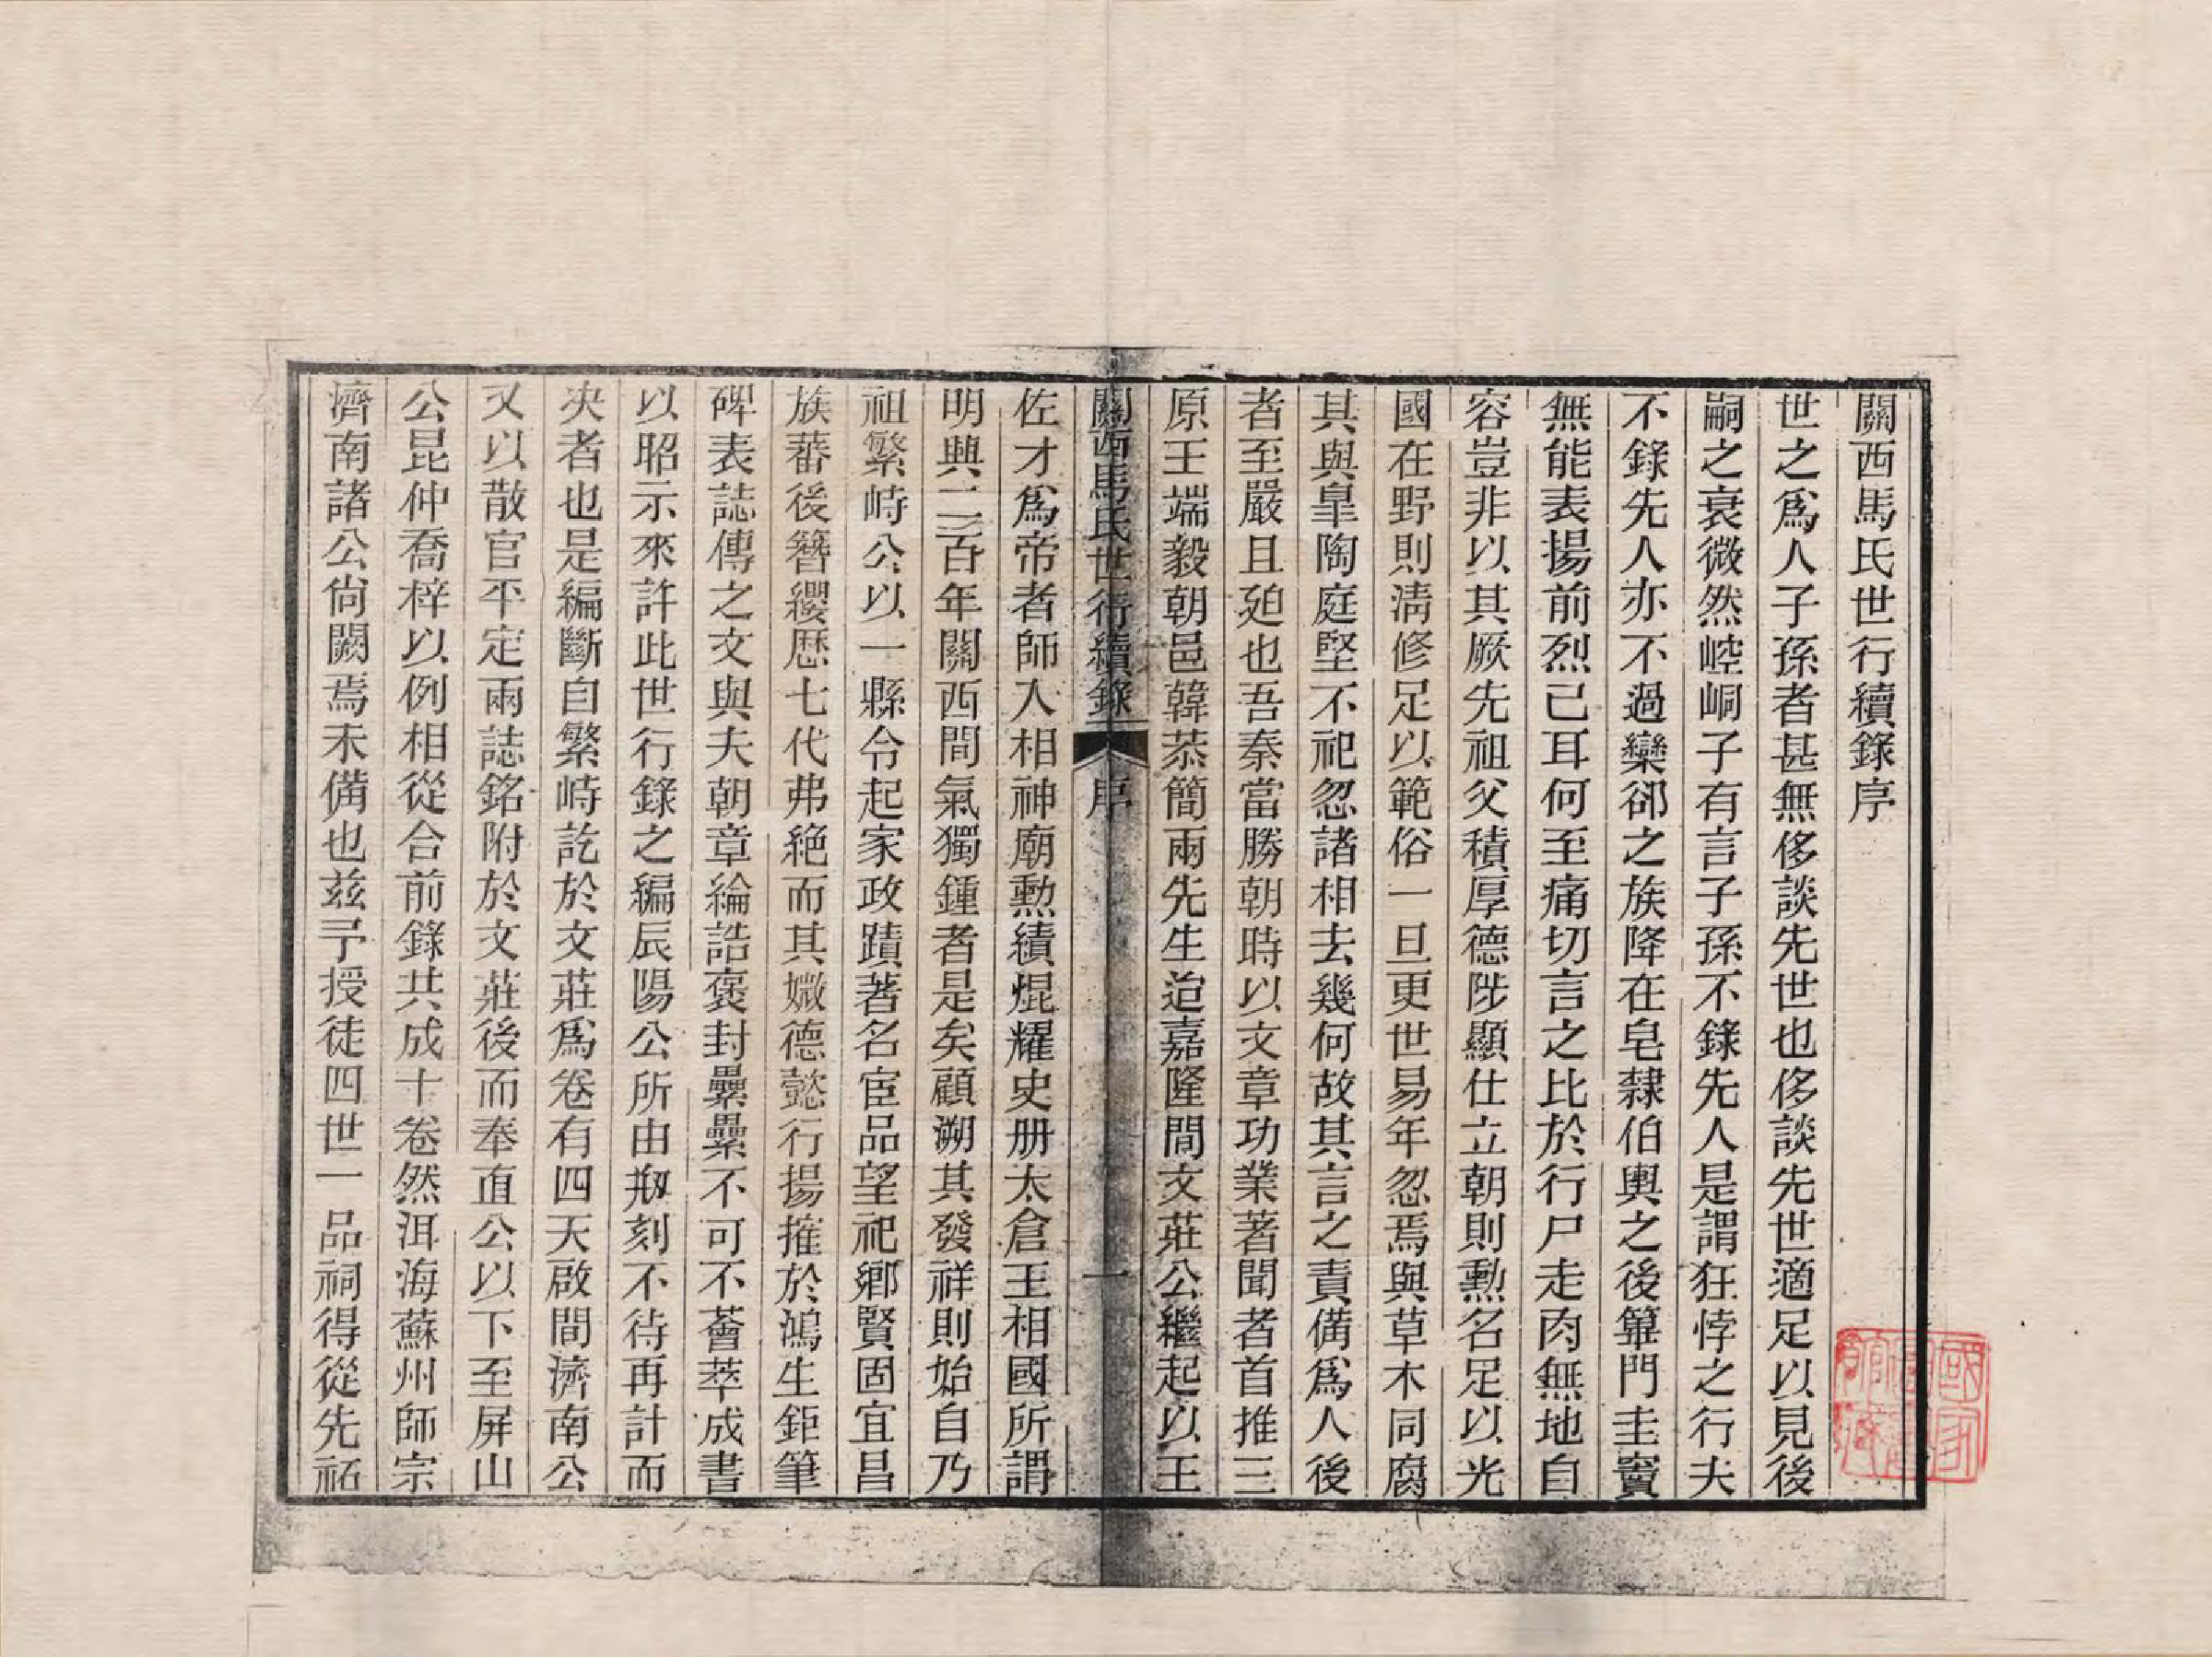 關西馬氏世行續錄序
世之爲人子孫者甚無侈談先世也侈談先世適足以見後
嗣之衰微然崆峒子有言子孫不錄先人是謂狂悖之行夫
不錄先人亦不過欒郤之族降在皂隸伯輿之後篳門圭竇
無能表揚前烈已耳何至痛切言之比於行尸走肉無地自
容豈非以其厥先祖父積厚德陟顯仕立朝則勲名足以光
國在野則淸修足以範俗一旦更世易年忽焉與草木同腐
其與皐陶庭堅不祀忽諸相去幾何故其言之責備爲人後
者至嚴且廹也吾秦當勝朝時以文章功業著聞者首推三
原王端毅朝邑韓恭簡兩先生迨嘉隆間文莊公繼起以王
關西馬氏世行續錄 序 一
佐才爲帝者師入相神廟勲績焜耀史册太倉王相國所謂
明興二百年關西間氣獨鍾者是矣顧溯其發祥則始自乃
祖繁峙公以一縣令起家政蹟著名宦品望祀鄕賢固宜昌
族蕃後簪纓歷七代弗絶而其媺德懿行揚搉於鴻生鉅筆
碑表誌傳之文與夫朝章綸誥褒封纍纍不可不薈萃成書
以昭示來許此世行錄之編辰陽公所由剏刻不待再計而
决者也是編斷自繁峙訖於文莊爲卷有四天啟間濟南公
又以散官平定兩誌銘附於文莊後而奉直公以下至屏山
公昆仲喬梓以例相從合前錄共成十卷然洱海蘇州師宗
濟南諸公尙闕焉未備也兹予授徒四世一品祠得從先祏